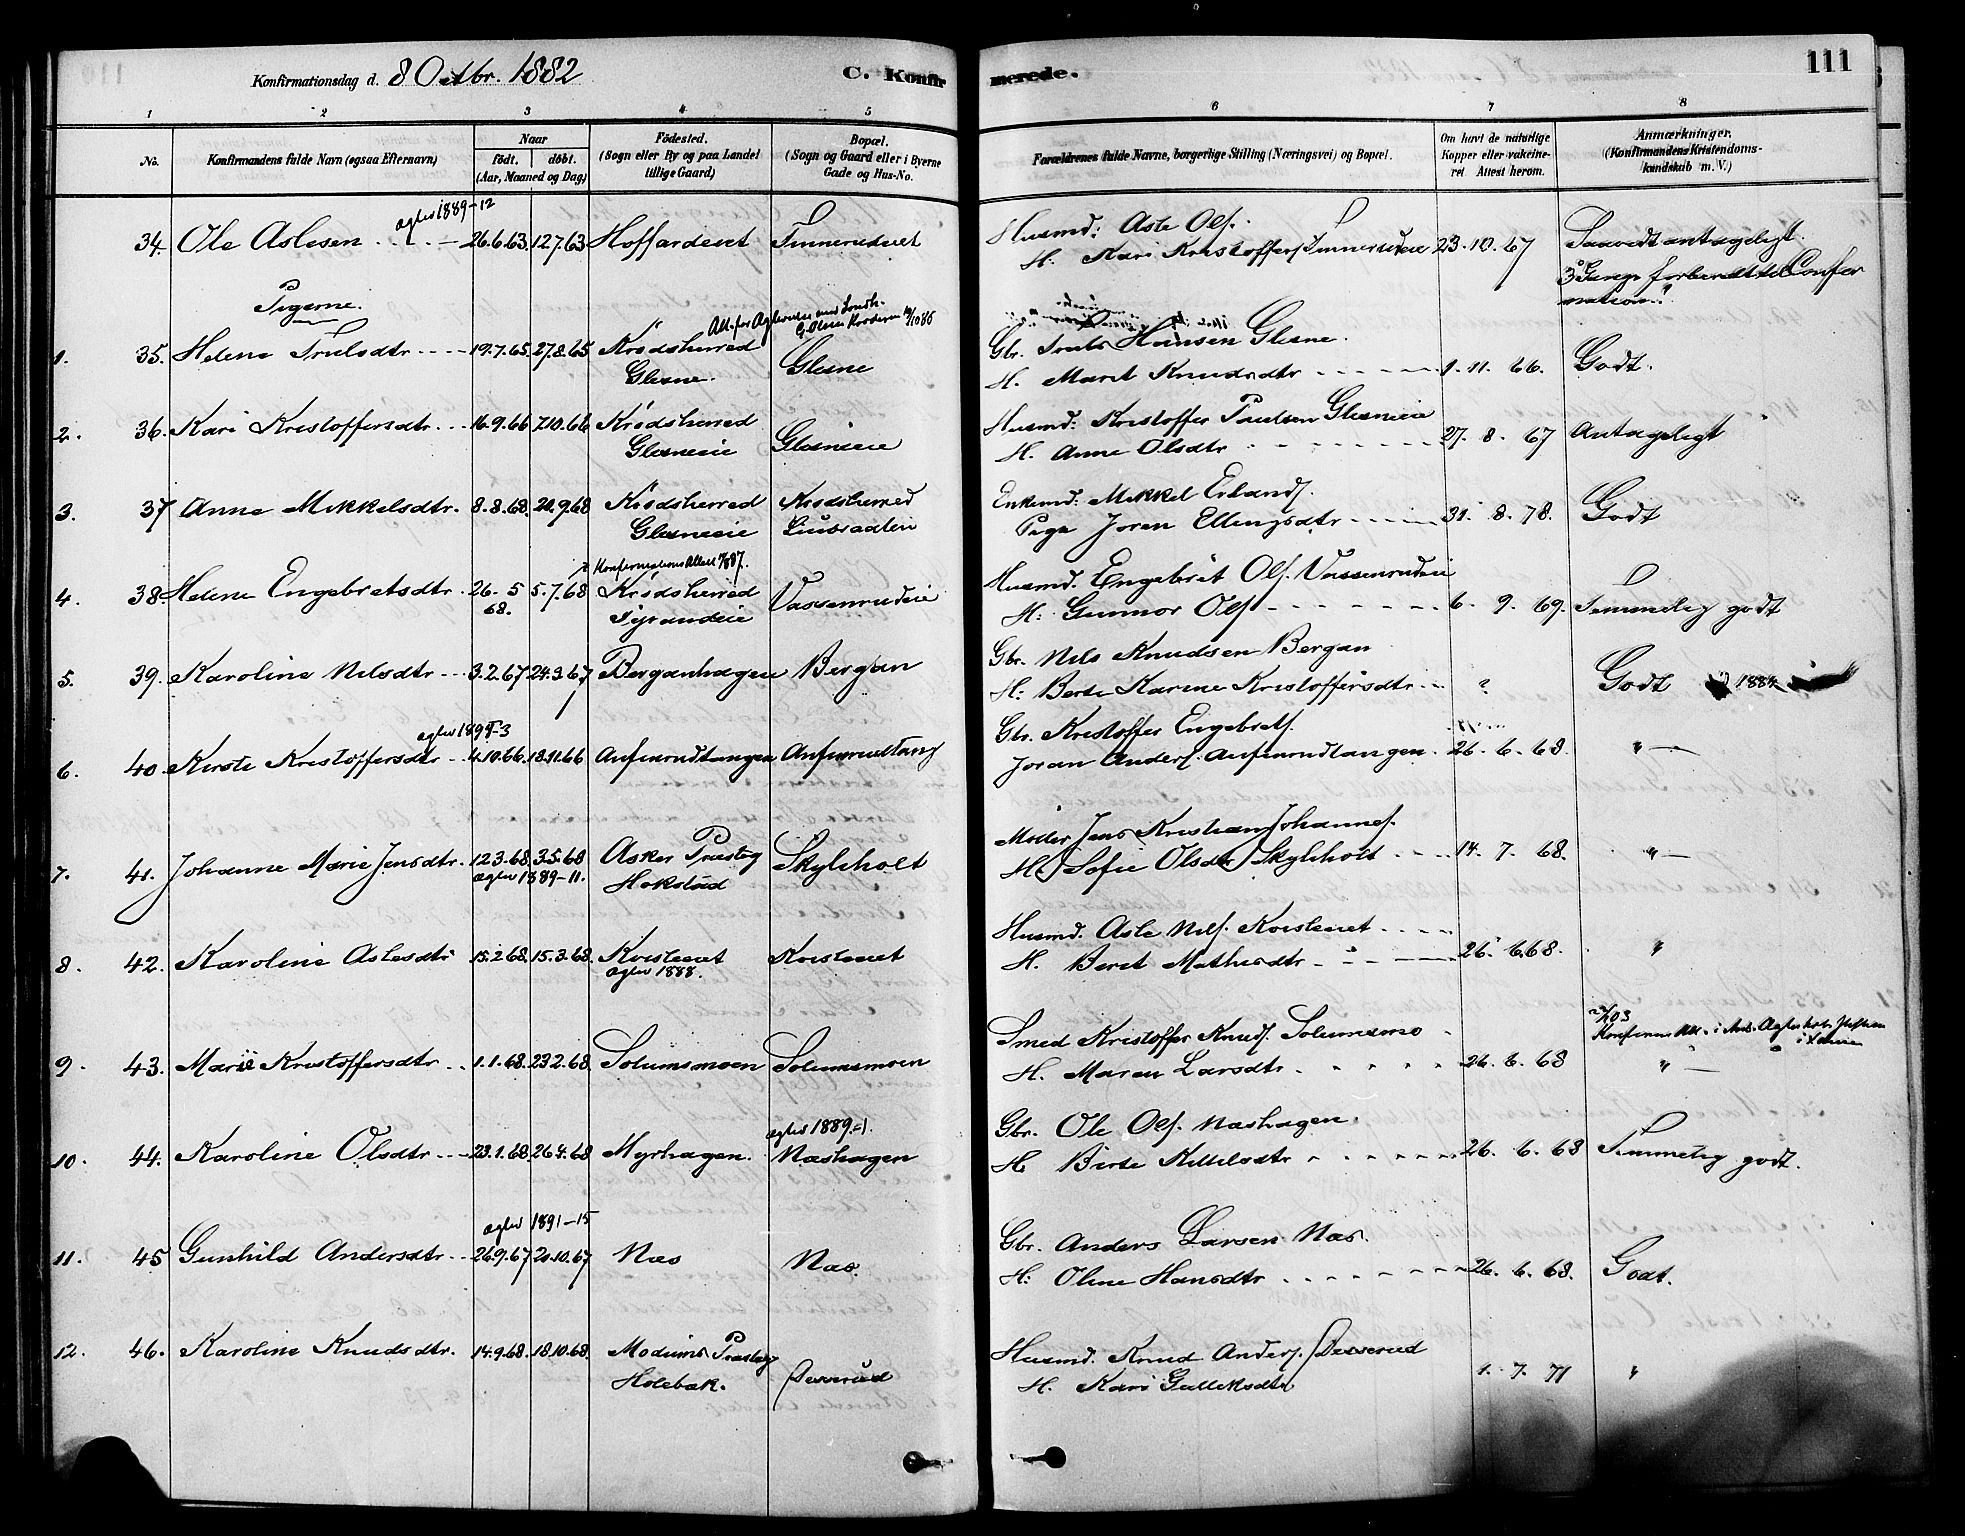 Konfirmationsdag d. 8 Octbr. 1882 C. Konfirmerede. 111
1 2 3 4 5 6 7 8
No. Konfirmandens fulde Navn (ogsaa Efternavn) Naar født. døbt. (Aar, Maaned og Dag) Fødested. (Sogn eller By og paa Landet tillige Gaard) Bopæl. (Sogn og Gaard eller i Byerne Gade og Hus-No. Forældrenes fulde Navne, borgerlige Stilling (Næringsvei) og Bopæl. Om havt de naturlige Kopper eller vakcineret. Attest herom. Anmærkninger. (Konfirmandens Kristendomskundskab m. V.)
aglev 1889-12
34. Ole Aslesen 26.6.63. 12.7.63 Hoffardeiet Husmd: Asle Ols. 23.10.67
H. Kari Kristoffers.
3 Gange forberedt til Confermation.
Pigerne.
1. 35. Helene Trulsdtr 19.7.65 27.8.65 Krødsherred Glesne Gbr. Truls Hansen Glesne. 1.11.66. Godt.
Glesne. H. Marit Knudsdtr
2. 36. Kari Kristoffersdtr 16.9.66 7.10.66 Krødsherred Glesneeie Husmd: Kristoffer Paulsen Glesneeie 27.8.67 Antageligt
Glesneeie H. Anne Olsdtr
3. 37 Anne Mikkelsdtr. 8.8.68. 20.9.68 Krødsherred Krødsherred Enkemd: Mikkel Erlands. 31.8.78. Godt
Glesneeie Pige Joren Ellingsdtr
Konfirmations Attest 7/887.
4. 38. Helene Engebretsdtr. 26.5 68. 5.7.68 Krødsherred Vassenrudeie Husmd. Engebrët Ols. Vassenrudeie
H: Gunnor Ols 6.9.69. Temmelig godt
5. 39. Karoline Nilsdtr 3.2.67 24.3.67 Berganhagen Bergan Gbr. Nils Knudsen Bergan
H: Berte Karine Kristoffersdtr ? Godt 1884
6. 40. Kirsti Kristoffersdtr 4.10.66. 18.11.66 Anfinrudtangen Anfinrudtang Gbr. Kristoffer Engebrets.
Joran Anders. Anfinrudtangen 26.6.68. " —
7. 41. Johanne Marie Jensdtr. 12.3.68. 3.5.68 Asker Præsteg Skyleholt Jens Kristian Johannes.
aglev 1889-11. Hokstad H. Sofie Olsdtr Skyleholt 14.7.68. " —
8. 42. Karoline Aslesdtr 15.2.68. 15.3.68. Kvisleeiet Kvisleeiet Husmd. Asle Nils. Kvisleeiet
aglev 1888. H. Berit Mathisdtr 26.6.68. "
9. 43. Marie Kristoffersdtr 1.1.68. 23.2.68. Solumsmoen Solumsmoen Smed Kristoffer Knuds. Solumsmo
H. Maren Larsdtr 26.6.68 " —
aglev 1889.-1.
10. 44. Karoline Olsdtr 23.1.68. 26.4.68 Myrhagen. Næshagen Gbr. Ole Ols. Næshagen.
H Birte Kittilsdtr 26.6.68 Temmelig godt.
aglev 1891-15
11. 45 Gunhild Andersdtr 26.9.67 20.10.67 Næs Næs. Gbr. Anders Larsen Næs.
H: Oline Hansdtr 26.6.68. Godt.
12. 46. Karoline Knudsdtr. 14.9.68. 18.10.68. Modums Præsteg Desserud Husmd. Knud Anders. Desserud
Holebæk. H. Kari Gulleksdtr 1.7.71 "